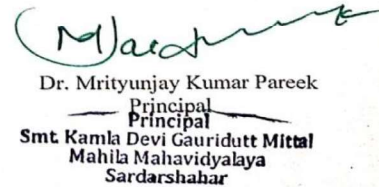 Dr. Mrityunjay Kumar Pareek
Principal
Principal
Smt. Kamla Devi Gauridutt Mittal
Mahila Mahavidyalaya
Sardarshahar